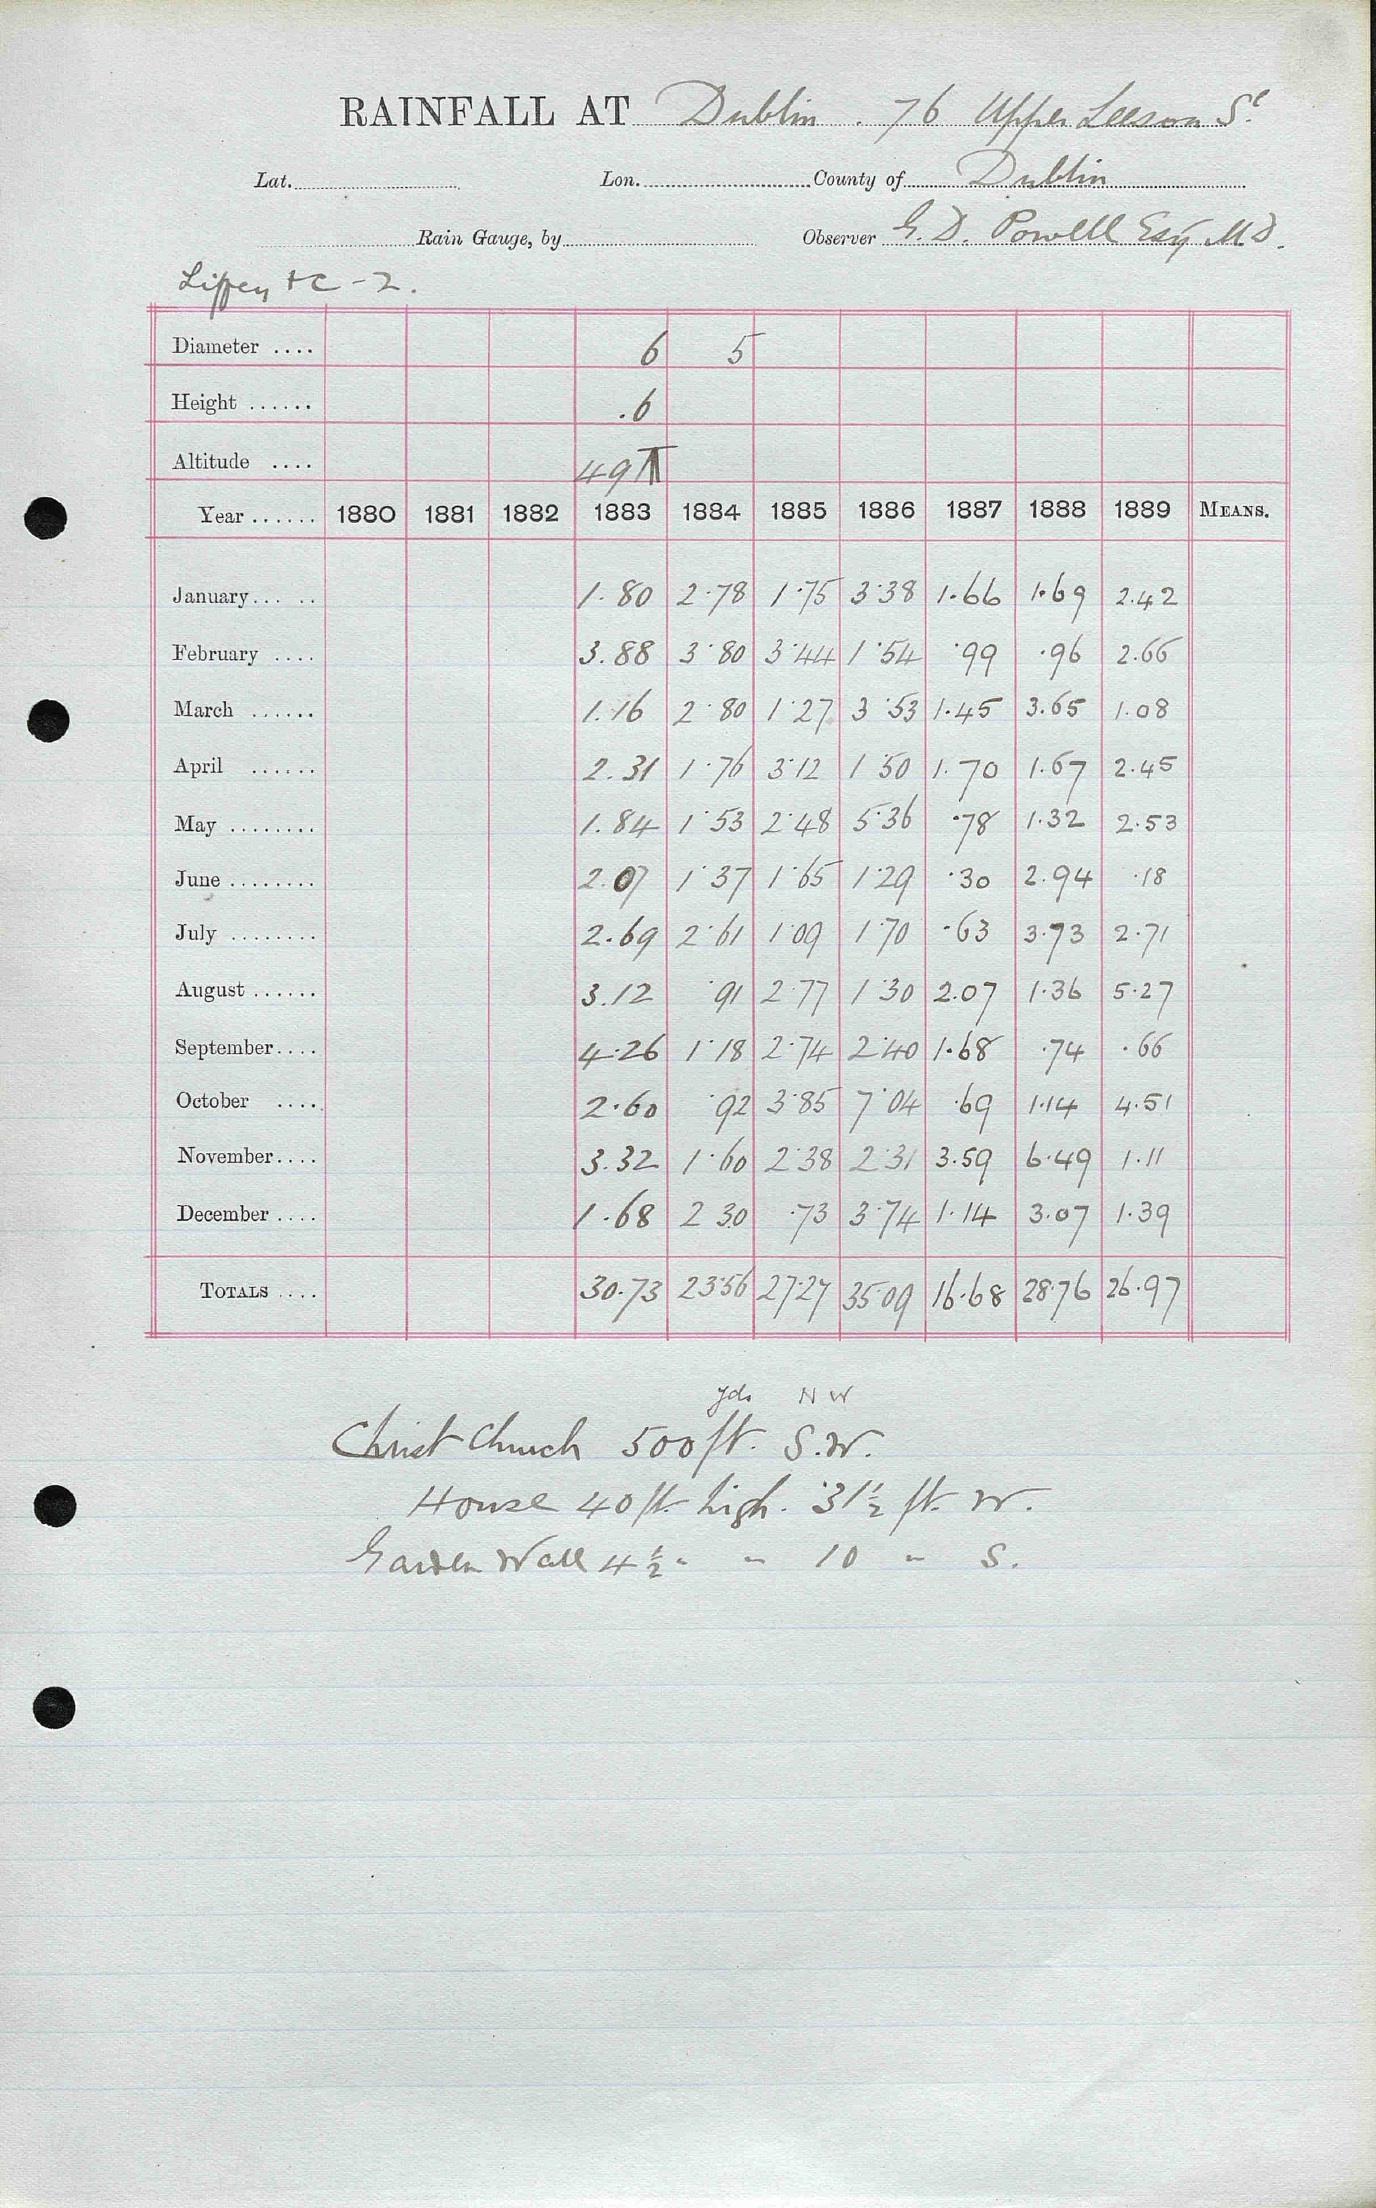 RAINFALL AT Dublin . 76 Upper Leeson St.
Lat. Lon. County of Dublin
Rain Gauge, by Observer G. D. Powell Esq M.D.
Liffey &c - 2.
Diameter .... 6 5
Height ...... .6
Altitude .... 49 T
Year ...... 1880 1881 1882 1883 1884 1885 1886 1887 1888 1889 MEANS.
January... .. 1.80 2.78 1.75 3.38 1.66 1.69 2.42
February .... 3.88 3.80 3.44 1.54 .99 .96 2.66
March ...... 1.16 2.80 1.27 3.53 1.45 3.65 1.08
April ...... 2.31 1.76 3.12 1.50 1.70 1.67 2.45
May ........ 1.84 1.53 2.48 5.36 .78 1.32 2.53
June ........ 2.07 1.37 1.65 1.29 .30 2.94 .18
July ........ 2.69 2.61 1.09 1.70 .63 3.73 2.71
August ...... 3.12 .91 2.77 1.30 2.07 1.36 5.27
September.... 4.26 1.18 2.74 2.40 1.68 .74 .66
October .... 2.60 .92 3.85 7.04 .69 1.14 4.51
November.... 3.32 1.60 2.38 2.31 3.59 6.49 1.11
December .... 1.68 2 30 .73 3.74 1.14 3.07 1.39
TOTALS .... 30.73 23.56 27.27 35.09 16.68 28.76 26.97
yds N W
Christ Church 500 ft. S.W.
House 40 ft. high. 31½ ft. W.
Garden Wall 4½ " " 10 " S.